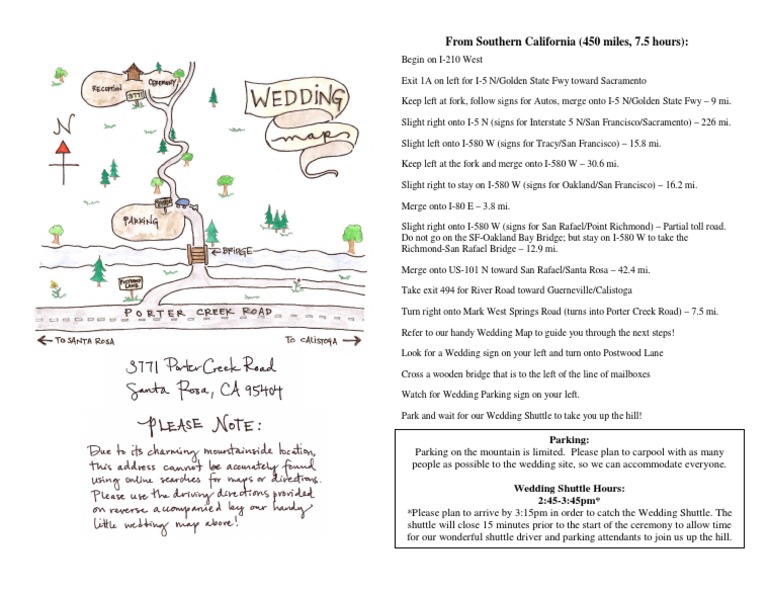 RECEPTION
CEREMONY
3771
WEDDING
map
N
PARKING
BRIDGE
PORTER CREEK ROAD
TO SANTA ROSA
TO CALISTOGA
3771 Porter Creek Road
Santa Rosa, CA 95404
PLEASE NOTE:
Due to its charming mountainside location,
this address cannot be accurately found
using online searches for maps or directions.
Please use the driving directions provided
on reverse accompanied by our handy
little wedding map above!
From Southern California (450 miles, 7.5 hours):
Begin on I-210 West
Exit 1A on left for I-5 N/Golden State Fwy toward Sacramento
Keep left at fork, follow signs for Autos, merge onto I-5 N/Golden State Fwy – 9 mi.
Slight right onto I-5 N (signs for Interstate 5 N/San Francisco/Sacramento) – 226 mi.
Slight left onto I-580 W (signs for Tracy/San Francisco) – 15.8 mi.
Keep left at the fork and merge onto I-580 W – 30.6 mi.
Slight right to stay on I-580 W (signs for Oakland/San Francisco) – 16.2 mi.
Merge onto I-80 E – 3.8 mi.
Slight right onto I-580 W (signs for San Rafael/Point Richmond) – Partial toll road.
Do not go on the SF-Oakland Bay Bridge; but stay on I-580 W to take the
Richmond-San Rafael Bridge – 12.9 mi.
Merge onto US-101 N toward San Rafael/Santa Rosa – 42.4 mi.
Take exit 494 for River Road toward Guerneville/Calistoga
Turn right onto Mark West Springs Road (turns into Porter Creek Road) – 7.5 mi.
Refer to our handy Wedding Map to guide you through the next steps!
Look for a Wedding sign on your left and turn onto Postwood Lane
Cross a wooden bridge that is to the left of the line of mailboxes
Watch for Wedding Parking sign on your left.
Park and wait for our Wedding Shuttle to take you up the hill!
Parking:
Parking on the mountain is limited. Please plan to carpool with as many
people as possible to the wedding site, so we can accommodate everyone.
Wedding Shuttle Hours:
2:45-3:45pm*
*Please plan to arrive by 3:15pm in order to catch the Wedding Shuttle. The
shuttle will close 15 minutes prior to the start of the ceremony to allow time
for our wonderful shuttle driver and parking attendants to join us up the hill.